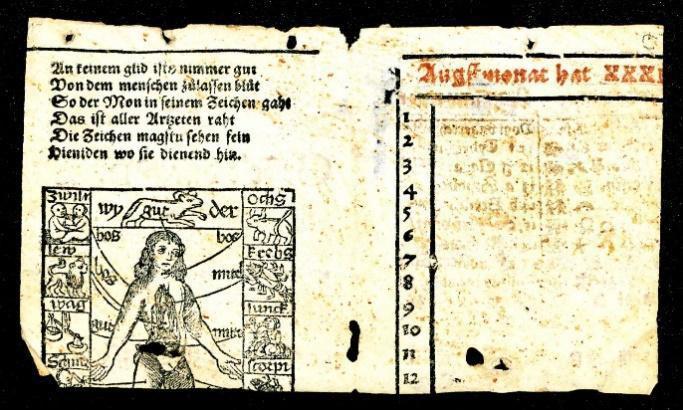 An keinem glid ists nimmer gut
Von dem menschen zůlassen blůt
So der Mon in seinem Zeichen gaht
Das ist aller Artzeten raht
Die Zeichen magstu sehen fein
Hieniden wo sie dienend hin.
Zwilī
wy
gut
der
Ochs
bos
bos
lew
bos
mitt
Krebs
wag
gut
mitt
Junck
Schütz
Scorpi
Augstmonat hat XXXI
1
2
3
4
5
6
7
8
9
10
11
12